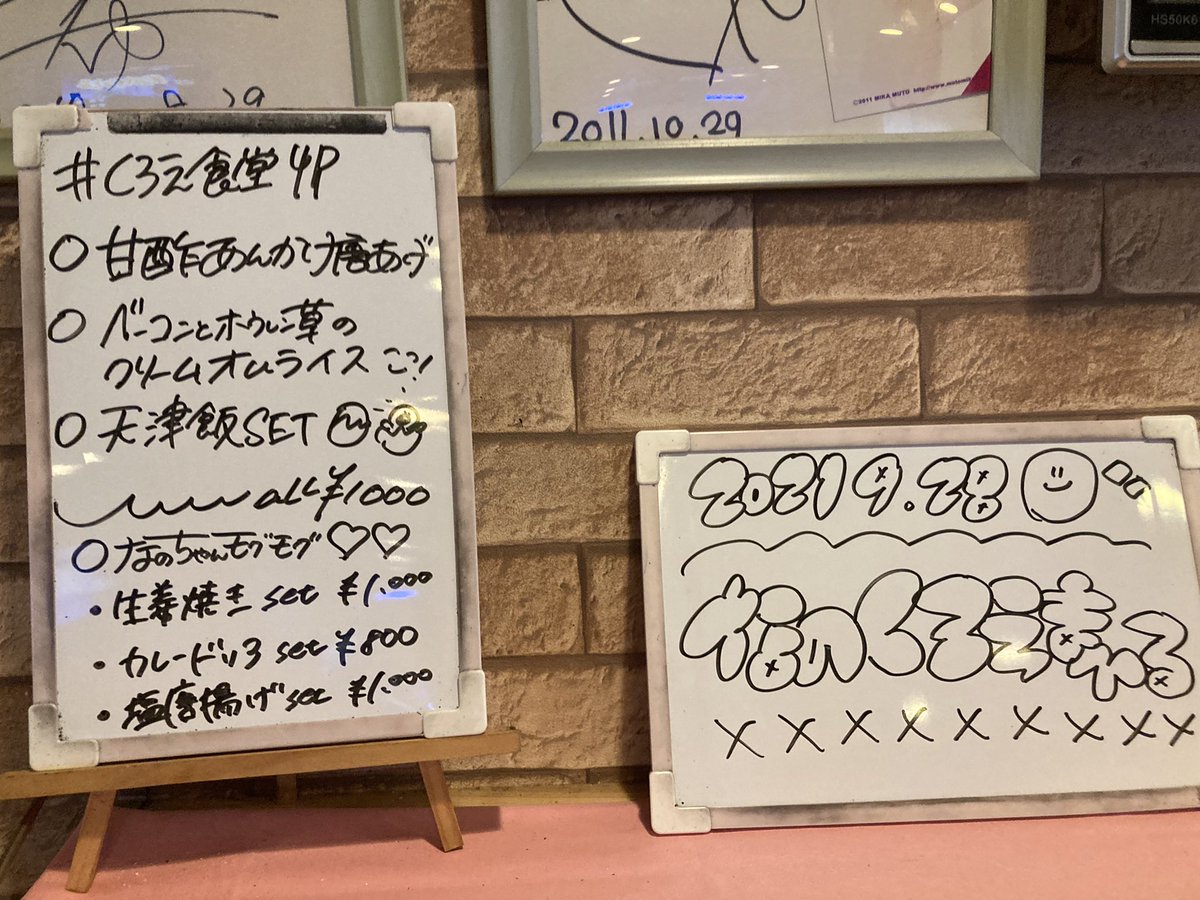 2011.10.29
©2011 MIKA MUTO http://www.mutomik
HS50K6
#くろえ食堂 4P
○甘酢あんかけ唐あげ
○ベーコンとホウレン草の
クリームオムライス
○天津飯SET
all ¥1000
○なのちゃんモグモグ♡♡
・生姜焼き set ¥1.000
・カレードリア set ¥800
・塩唐揚げ set ¥1.000
2021 9.28
なのくろえまみる
×××××××××